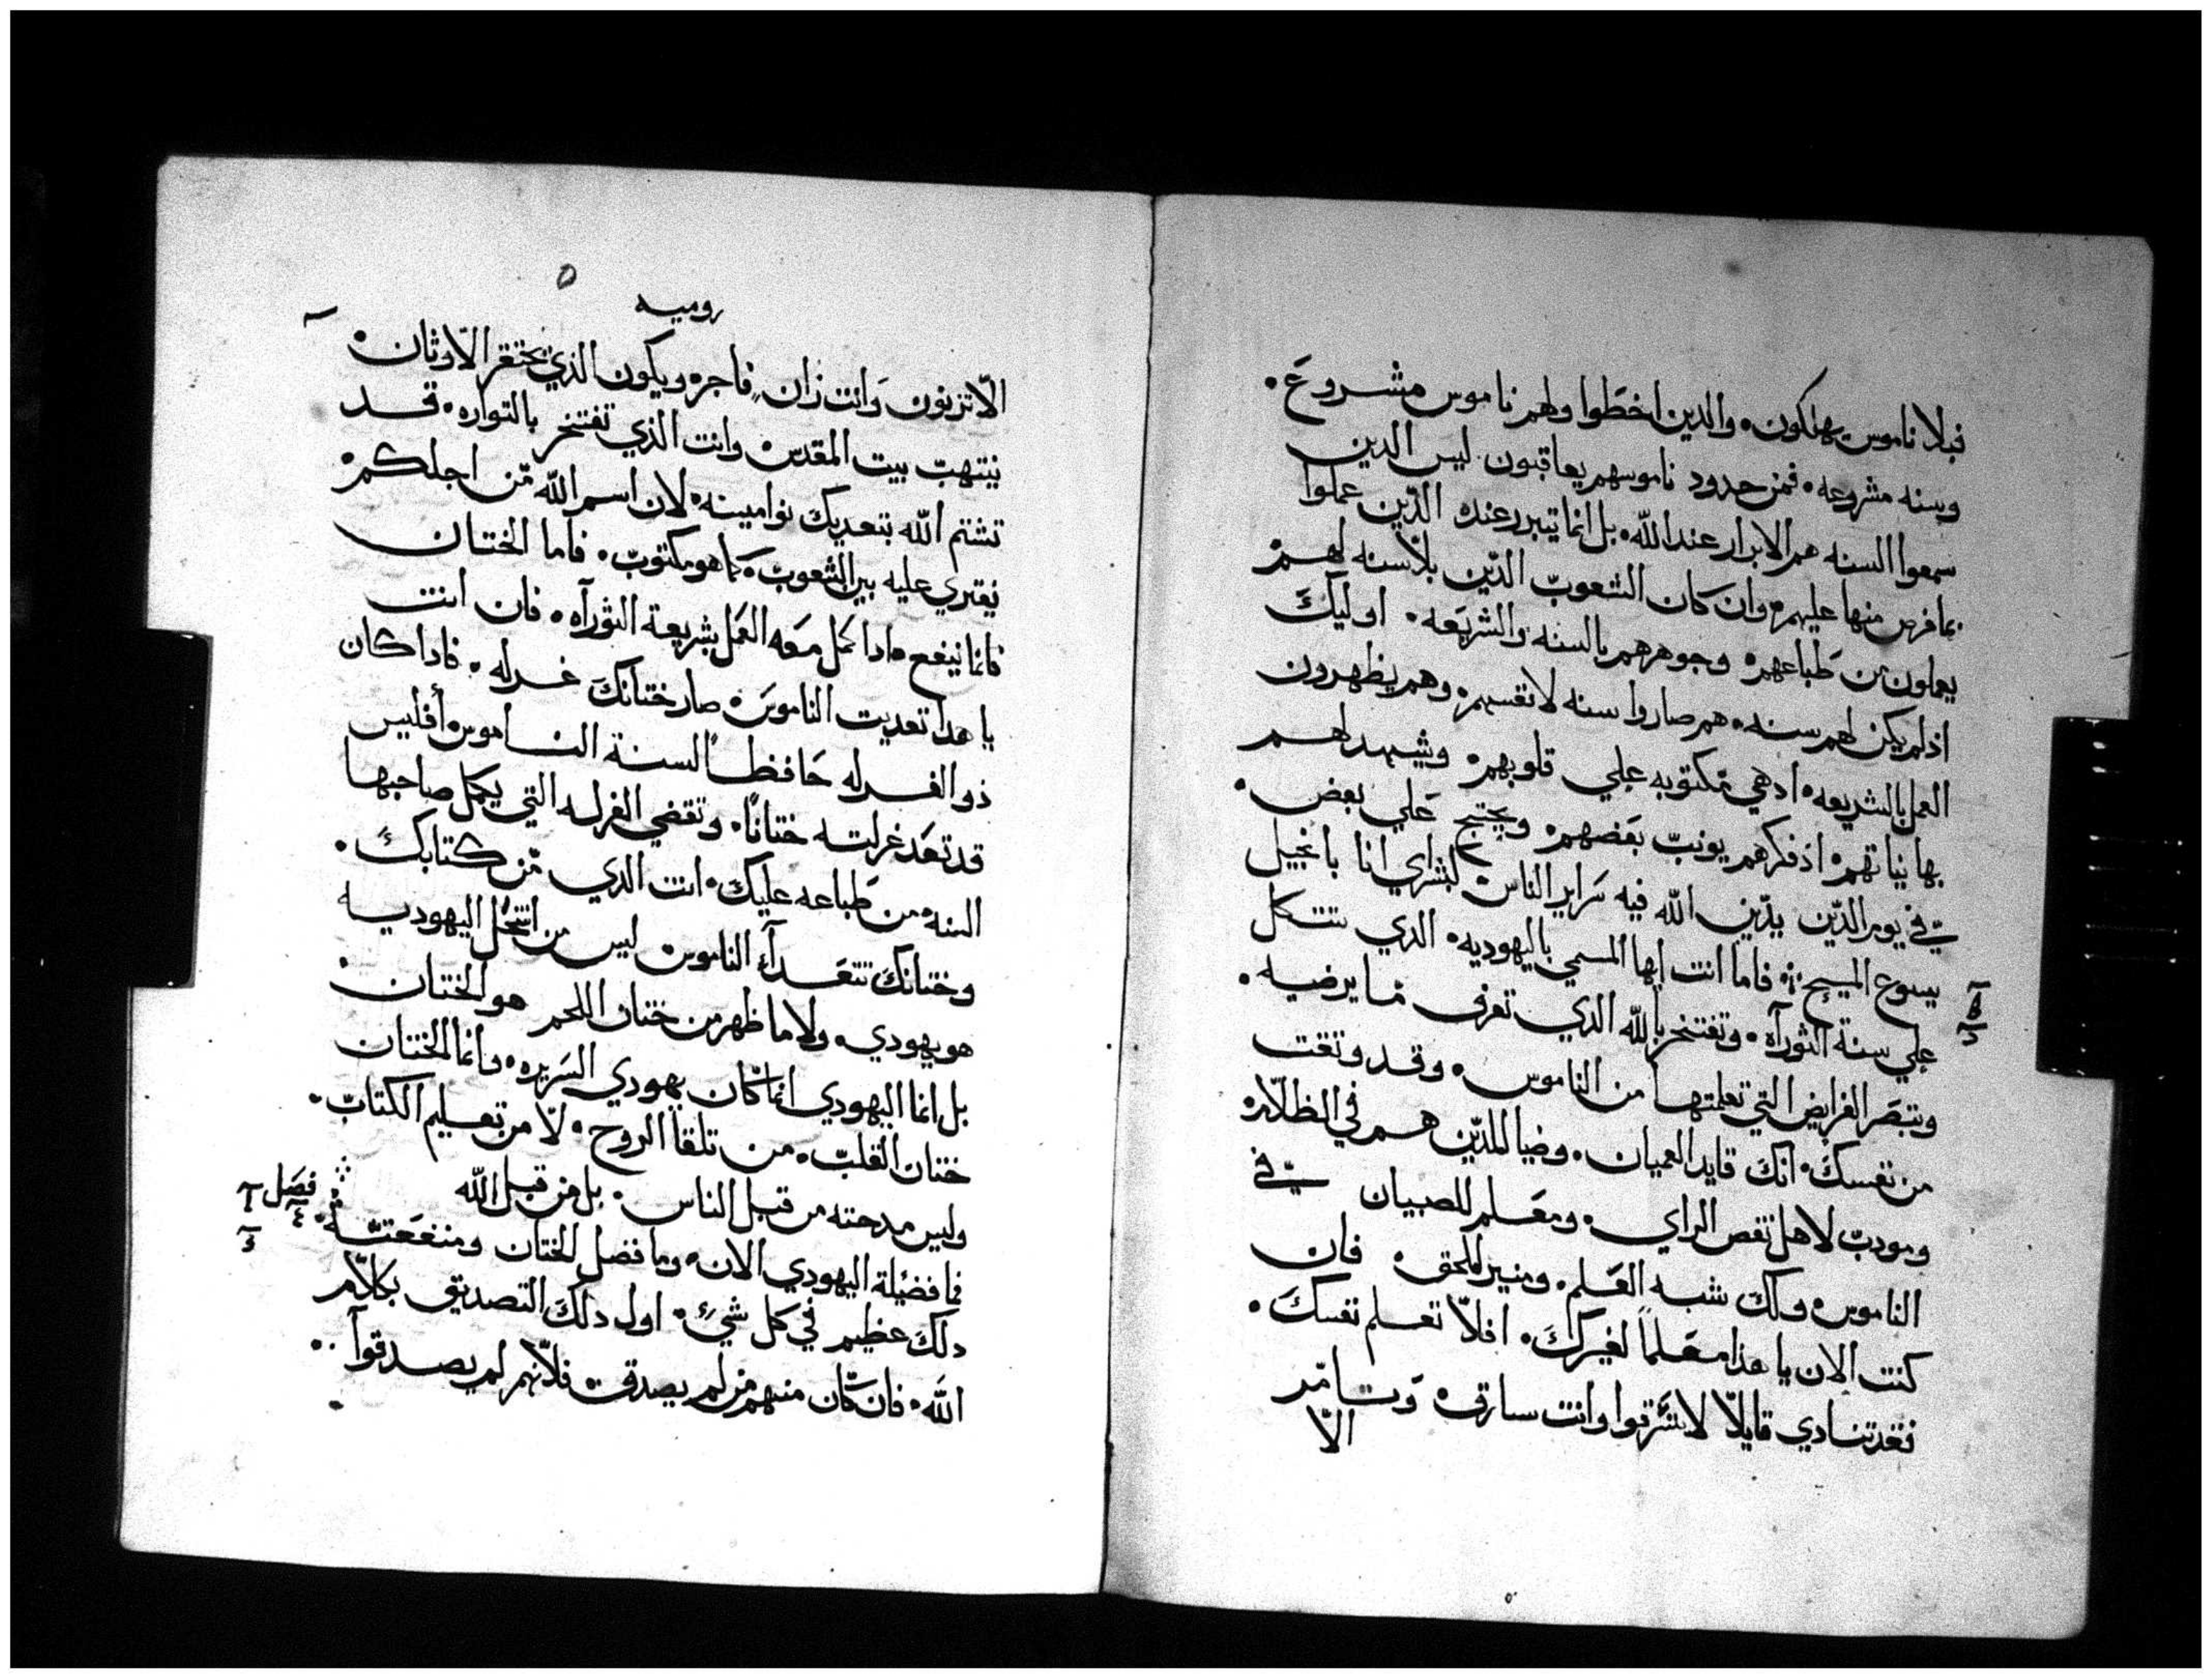 فبلا ناموس يهلكون٠ والدين اخطوا ولهم ناموس مشروع٠
وسنه مشروعه٠ فمن حدود ناموسهم يعاقبون. ليس الدين
سمعوا السنه هم الابرار عند الله٠ بل انما تبرر عنده الدين عملوا
بما فرض منها عليهم٠ وان كان الشعوب الدين بلا سنه لهم
يعملون من طباعهم٠ وجوهرهم بالسنه والشريعه٠ اوليك
اذ لم يكن لهم سنه٠ هم صاروا سنه لانفسهم٠ وهم يظهرون
العمل بالشريعه٠ ادهي مكتوبه علي قلوبهم٠ وشهد لهم
بها نياتهم٠ اذ فكرهم يونب بعضهم٠ ويحتج علي بعض٠
في يوم الدين يدين الله فيه سراير الناس كبشراي انا بانجيل
يسوع المسيح٠ فاما انت ايها المسمي باليهوديه٠ الدي تتكل
علي سنة التورآه٠ وتفتخر بالله الدي تعرف ما يرضيه٠
وتبصر الفرايض التي تعلمتها من الناموس٠ وقد وثقت
من نفسك٠ انك قايد العميان٠ وضيا للدين هم في الظلام
ومودب لاهل نقص الراي٠ ومعلم للصبيان في
الناموس٠ ولك شبه العلم٠ ومنير للحق٠ فان
كنت الان يا هذا معلماً لغيرك٠ افلا تعلم نفسك٠
فقد تنادي قايلا لا تسرقوا وانت سارق٠ وتامر
الا
٥
روميه
الا تزنون وانت زان فاجر٠ ويكون الذي يحتقر الاوثان٠
ينتهب بيت المقدس٠ وانت الذي تفتخر بالتوراه٠ قد
تشتم الله بتعديك نواميسه٠ لان اسم الله من اجلكم٠
يفتري عليه بين الشعوب٠ كما هو مكتوب٠ فاما الختان
فانما ينفع٠ ادا كمل معه العمل بشريعة التورآه٠ فان انت
يا هدا تعديت الناموس٠ صار ختانك غرله٠ فاداكان
ذو الغرله حافظاً لسنة الناموس٠ أفليس
قد تعد غرلته ختانًا٠ وتقضي الغرله التي يكمل صاحبها
السنه٠ من طباعه عليك٠ انت الدي من كتابك٠
وختانك تتعدآ الناموس٠ ليس من انتحل اليهوديه
هو يهودي٠ ولا ما ظهر من ختان اللحم هو الختان٠
بل انما اليهودي انما كان يهودي السريره٠ وانما الختان
ختان القلب٠ من تلقا الروح٠ لا من تعليم الكتاب٠
وليس مدحته من قبل الناس٠ بل من قبل الله
فصل
فما فضيلة اليهودي الان٠ وما فضل الختان ومنفعته
دلك عظيم في كل شيء٠ اول دلك التصديق بكلام
الله٠ فان كان منهم من لم يصدق٠ فلانهم لم يصدقوآ٠